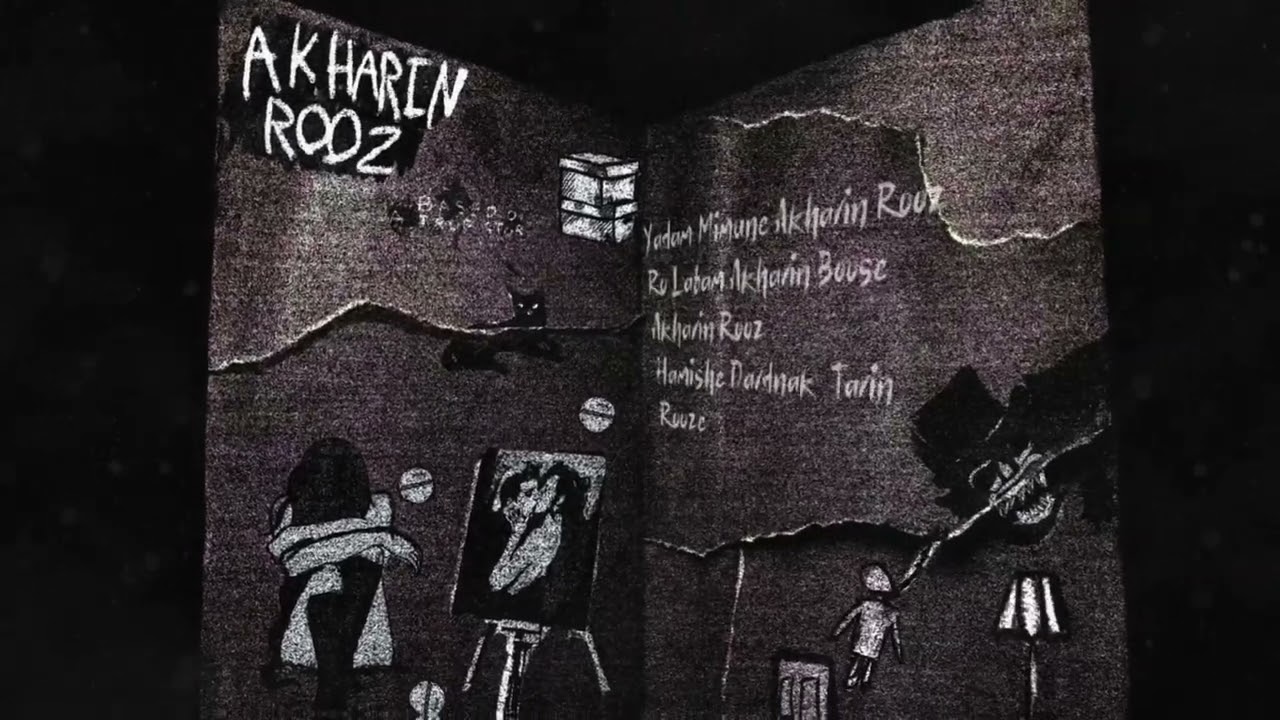 AKHARIN
ROOZ
BASED O
A TRUE STOR
Yadam Mimune Akharin Rooz
Ru Labam Akharin Boose
Akharin Rooz
Hamishe Dardnak Tarin
Rooze